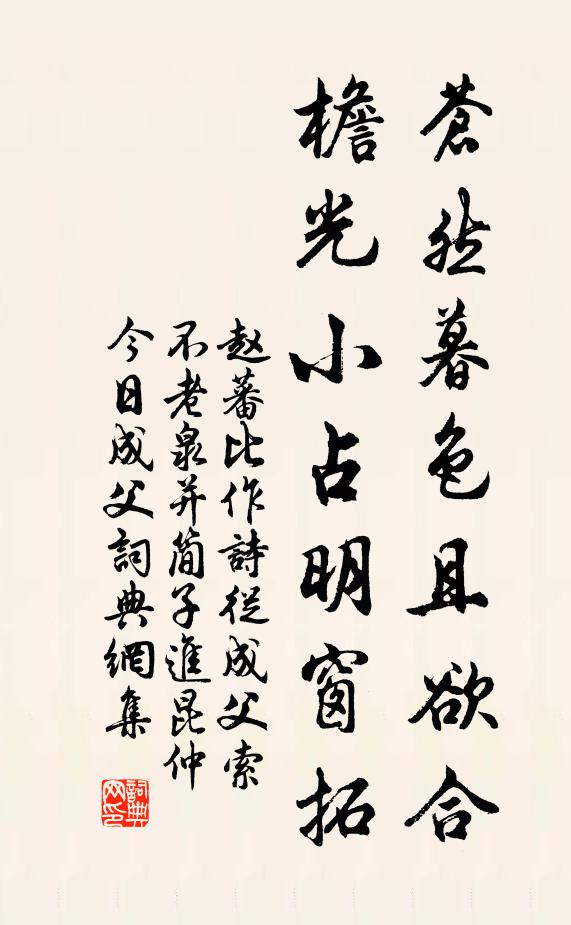 蒼然暮色且欲合
檐光小占明窗拓
赵蕃比作詩從成父索
不老泉并简子進昆仲
今日成父詞典網集
詞典
网印